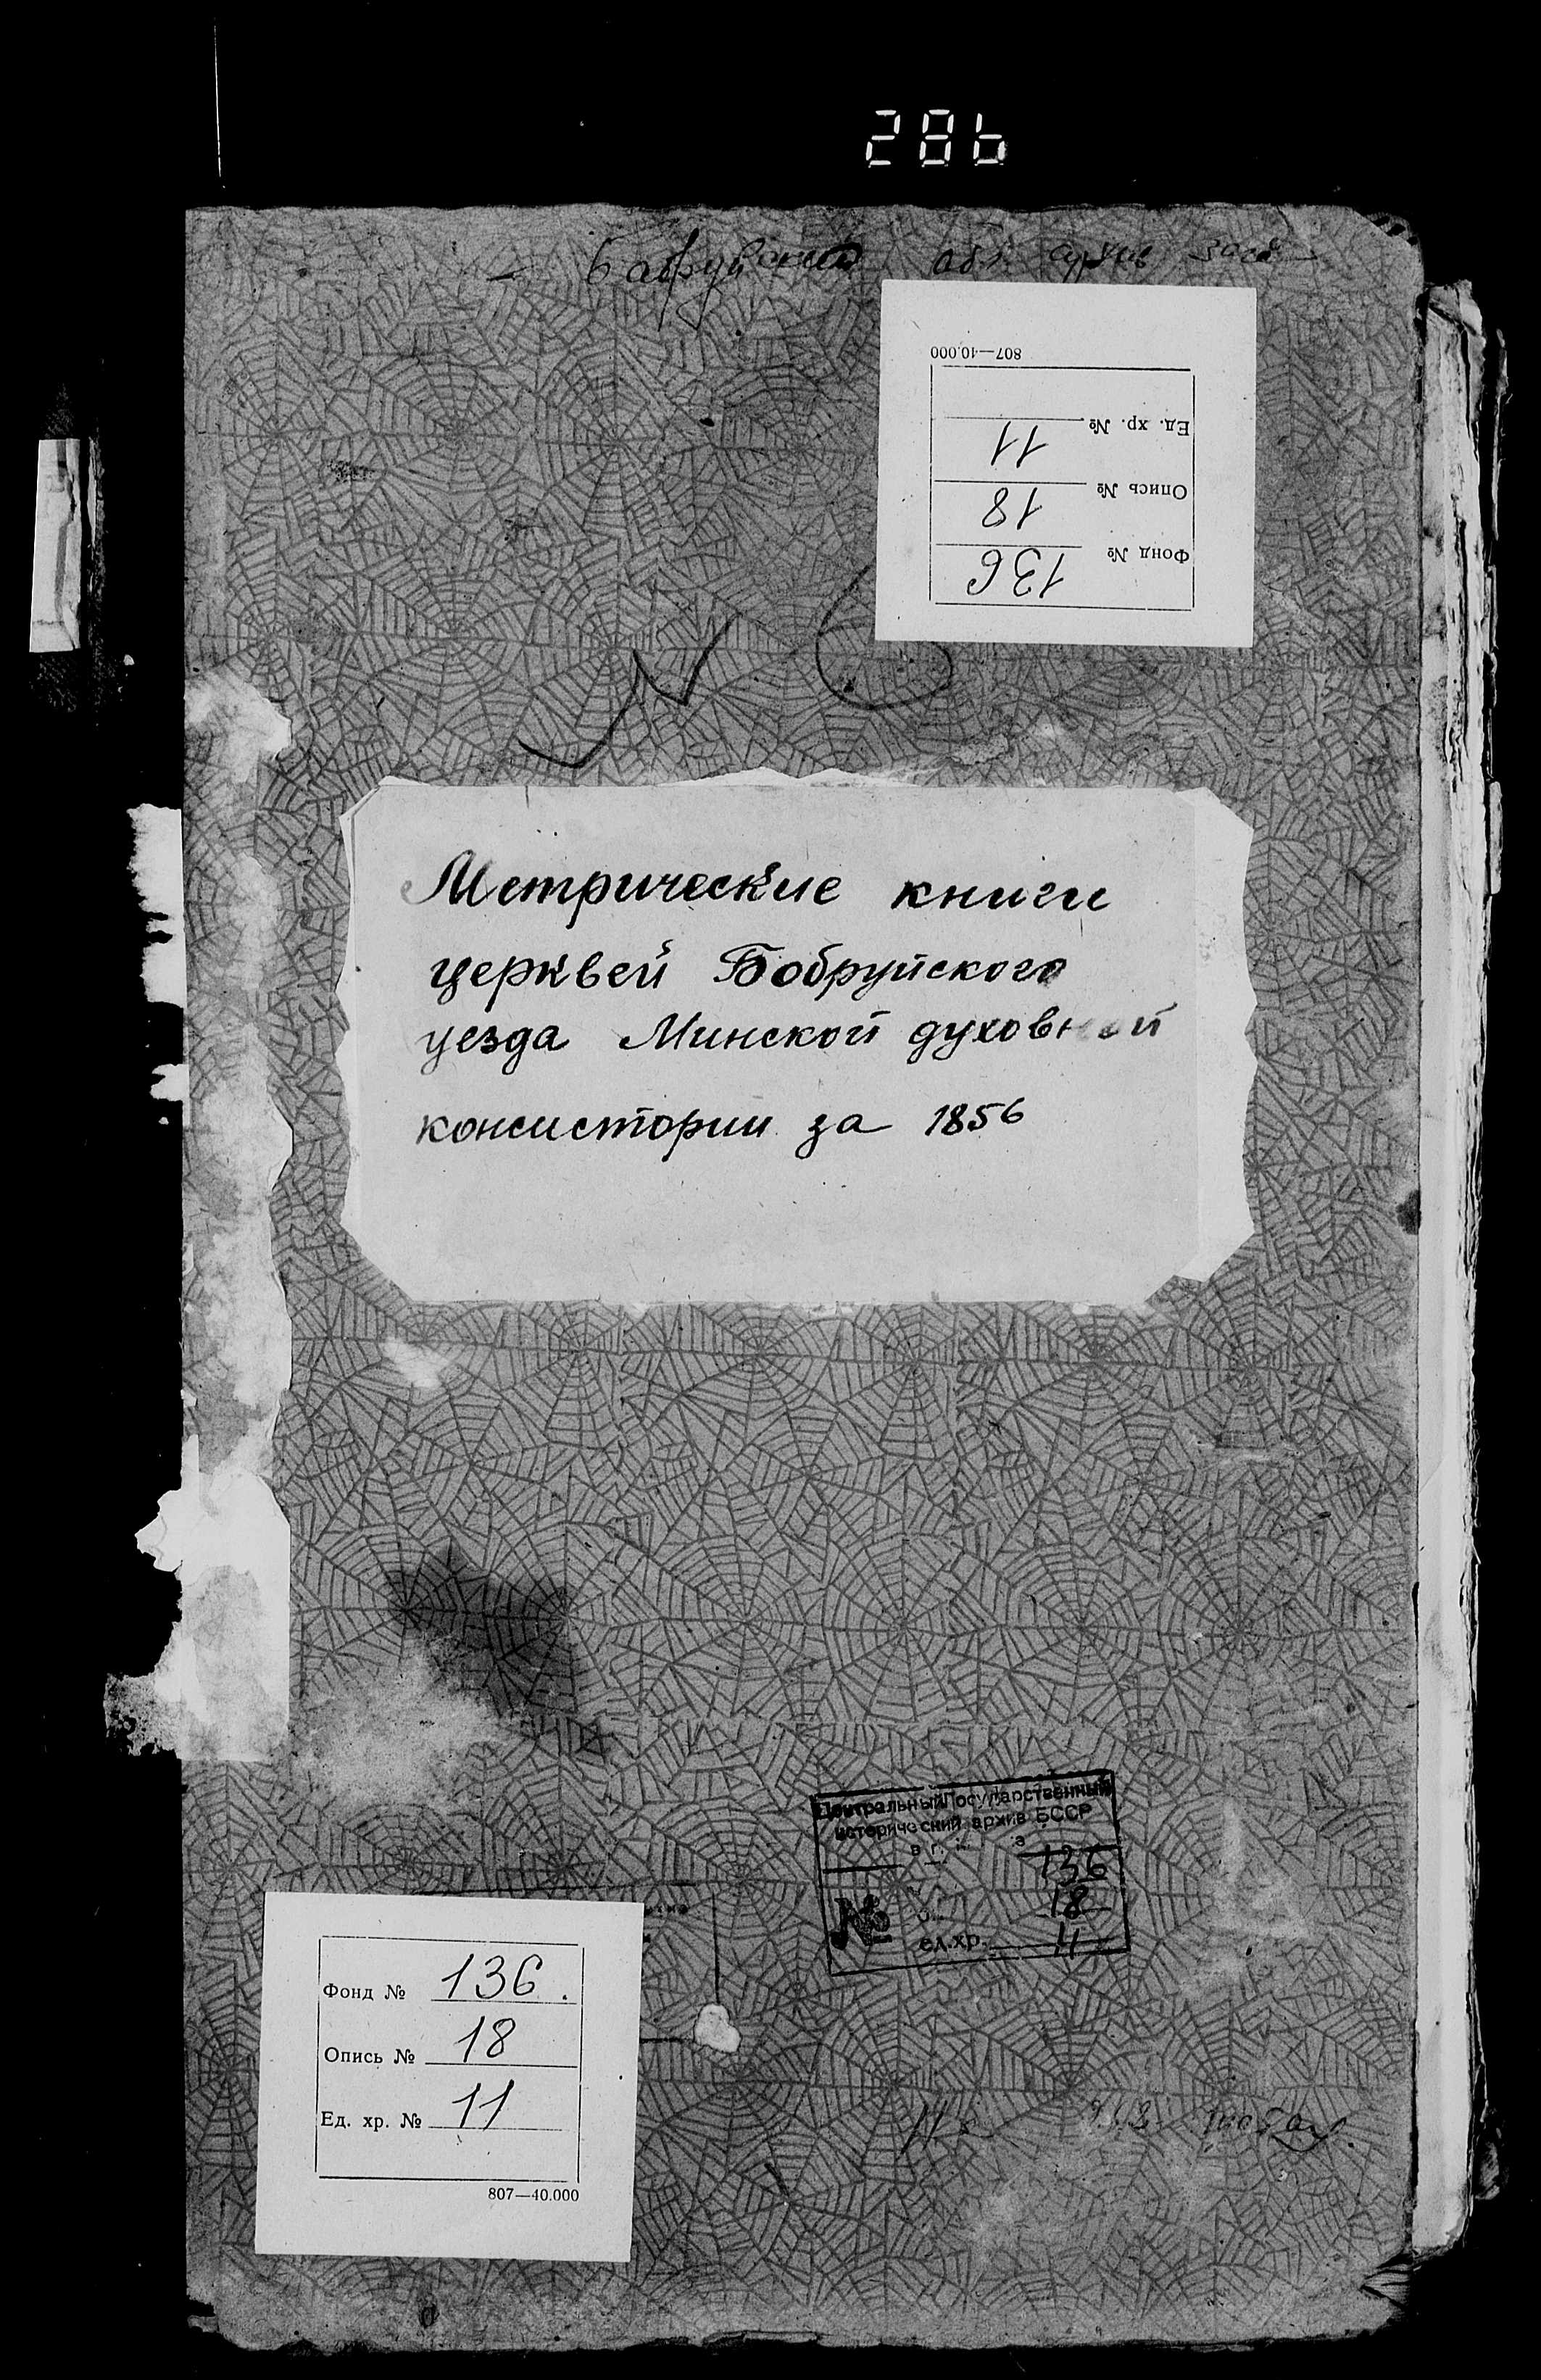 286
807—40.000
Ед. хр. № 11
Опись № 18
Фонд № 136
N 6
Метрические книги
церквей Бобруйского
уезда Минской духовной
консистории за 1856
Центральный Государственный
исторический архив БССР
в г.
136
№ 18
ед.хр. 4
Фонд № 136.
Опись № 18
Ед. хр. № 11
807—40.000